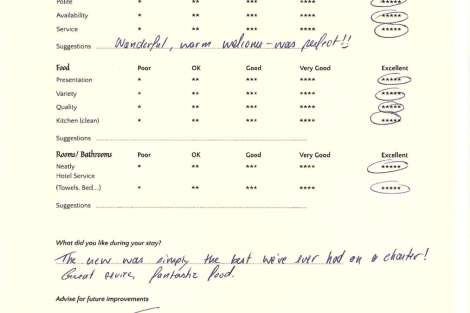 Polite * ** *** **** *****
Availability * ** *** **** *****
Service * ** *** **** *****
Suggestions Wonderful, warm welcome - was perfect!!
Food Poor OK Good Very Good Excellent
Presentation * ** *** **** *****
Variety * ** *** **** *****
Quality * ** *** **** *****
Kitchen (clean) * ** *** **** *****
Suggestions
Rooms/ Bathrooms Poor OK Good Very Good Excellent
Neatly * ** *** **** *****
Hotel Service
(Towels, Bed...) * ** *** **** *****
Suggestions
What did you like during your stay?
The crew was simply the best we've ever had on a charter!
Great service, fantastic food.
Advise for future improvements